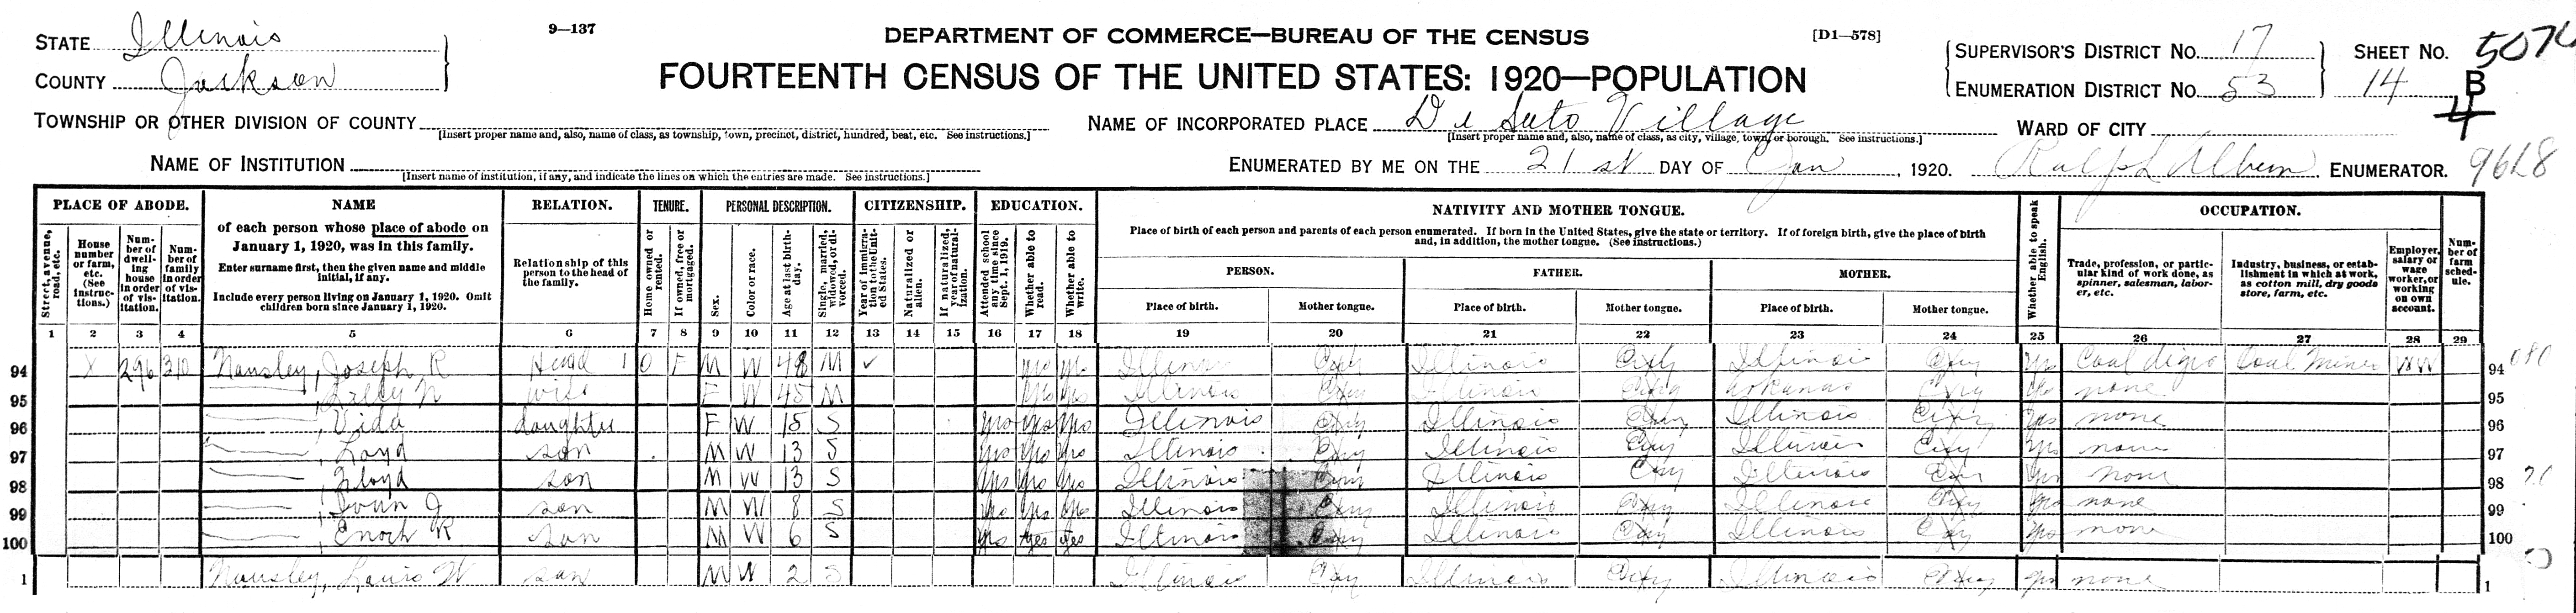 9—137
DEPARTMENT OF COMMERCE—BUREAU OF THE CENSUS
[D1—578]
STATE Illinois
COUNTY Jackson
FOURTEENTH CENSUS OF THE UNITED STATES: 1920—POPULATION
SUPERVISOR'S DISTRICT No. 17
ENUMERATION DISTRICT No. 53
SHEET No. 5076
14 B
4
TOWNSHIP OR OTHER DIVISION OF COUNTY
[Insert proper name and, also, name of class, as township, town, precinct, district, hundred, beat, etc. See instructions.]
NAME OF INCORPORATED PLACE De Soto Village
[Insert proper name and, also, name of class, as city, village, town, or borough. See instructions.]
WARD OF CITY
NAME OF INSTITUTION
[Insert name of institution, if any, and indicate the lines on which the entries are made. See instructions.]
ENUMERATED BY ME ON THE 21st DAY OF Jan, 1920. Ralph Albern ENUMERATOR.
PLACE OF ABODE.
Street, avenue, road, etc.
House number or farm, etc. (See instructions.)
Number of dwelling house in order of visitation.
Number of family in order of visitation.
NAME
of each person whose place of abode on January 1, 1920, was in this family.
Enter surname first, then the given name and middle initial, if any.
Include every person living on January 1, 1920. Omit children born since January 1, 1920.
RELATION.
Relationship of this person to the head of the family.
TENURE.
Home owned or rented.
If owned, free or mortgaged.
PERSONAL DESCRIPTION.
Sex.
Color or race.
Age at last birthday.
Single, married, widowed, or divorced.
CITIZENSHIP.
Year of immigration to the United States.
Naturalized or alien.
If naturalized, year of naturalization.
EDUCATION.
Attended school any time since Sept. 1, 1919.
Whether able to read.
Whether able to write.
NATIVITY AND MOTHER TONGUE.
Place of birth of each person and parents of each person enumerated. If born in the United States, give the state or territory. If of foreign birth, give the place of birth and, in addition, the mother tongue. (See instructions.)
PERSON.
FATHER.
MOTHER.
Place of birth.
Mother tongue.
Place of birth.
Mother tongue.
Place of birth.
Mother tongue.
Whether able to speak English.
OCCUPATION.
Trade, profession, or particular kind of work done, as spinner, salesman, laborer, etc.
Industry, business, or establishment in which at work, as cotton mill, dry goods store, farm, etc.
Employer, salary or wage worker, or working on own account.
Number of farm schedule.
1 2 3 4 5 6 7 8 9 10 11 12 13 14 15 16 17 18 19 20 21 22 23 24 25 26 27 28 29
94 X 296 310 Nausley, Joseph R Head 1 O F M W 48 M ✓ yes yes Illinois Illinois Illinois yes Coal digger Coal Mine W 94
95 N wife F W 45 M yes yes Illinois Illinois Arkansas yes none 95
96 , Vida daughter F W 15 S yes yes yes Illinois Illinois Illinois yes none 96
97 , Loyd son M W 13 S yes yes yes Illinois Illinois Illinois yes none 97
98 , Floyd son M W 13 S yes yes yes Illinois Illinois Illinois yes none 98
99 J son M W 8 S yes yes yes Illinois Illinois Illinois yes none 99
100 , Enoch R son M W 6 S yes yes yes Illinois Illinois Illinois yes none 100
1 Nausley, Louis W son M W 2 S Illinois Illinois Illinois yes none 1